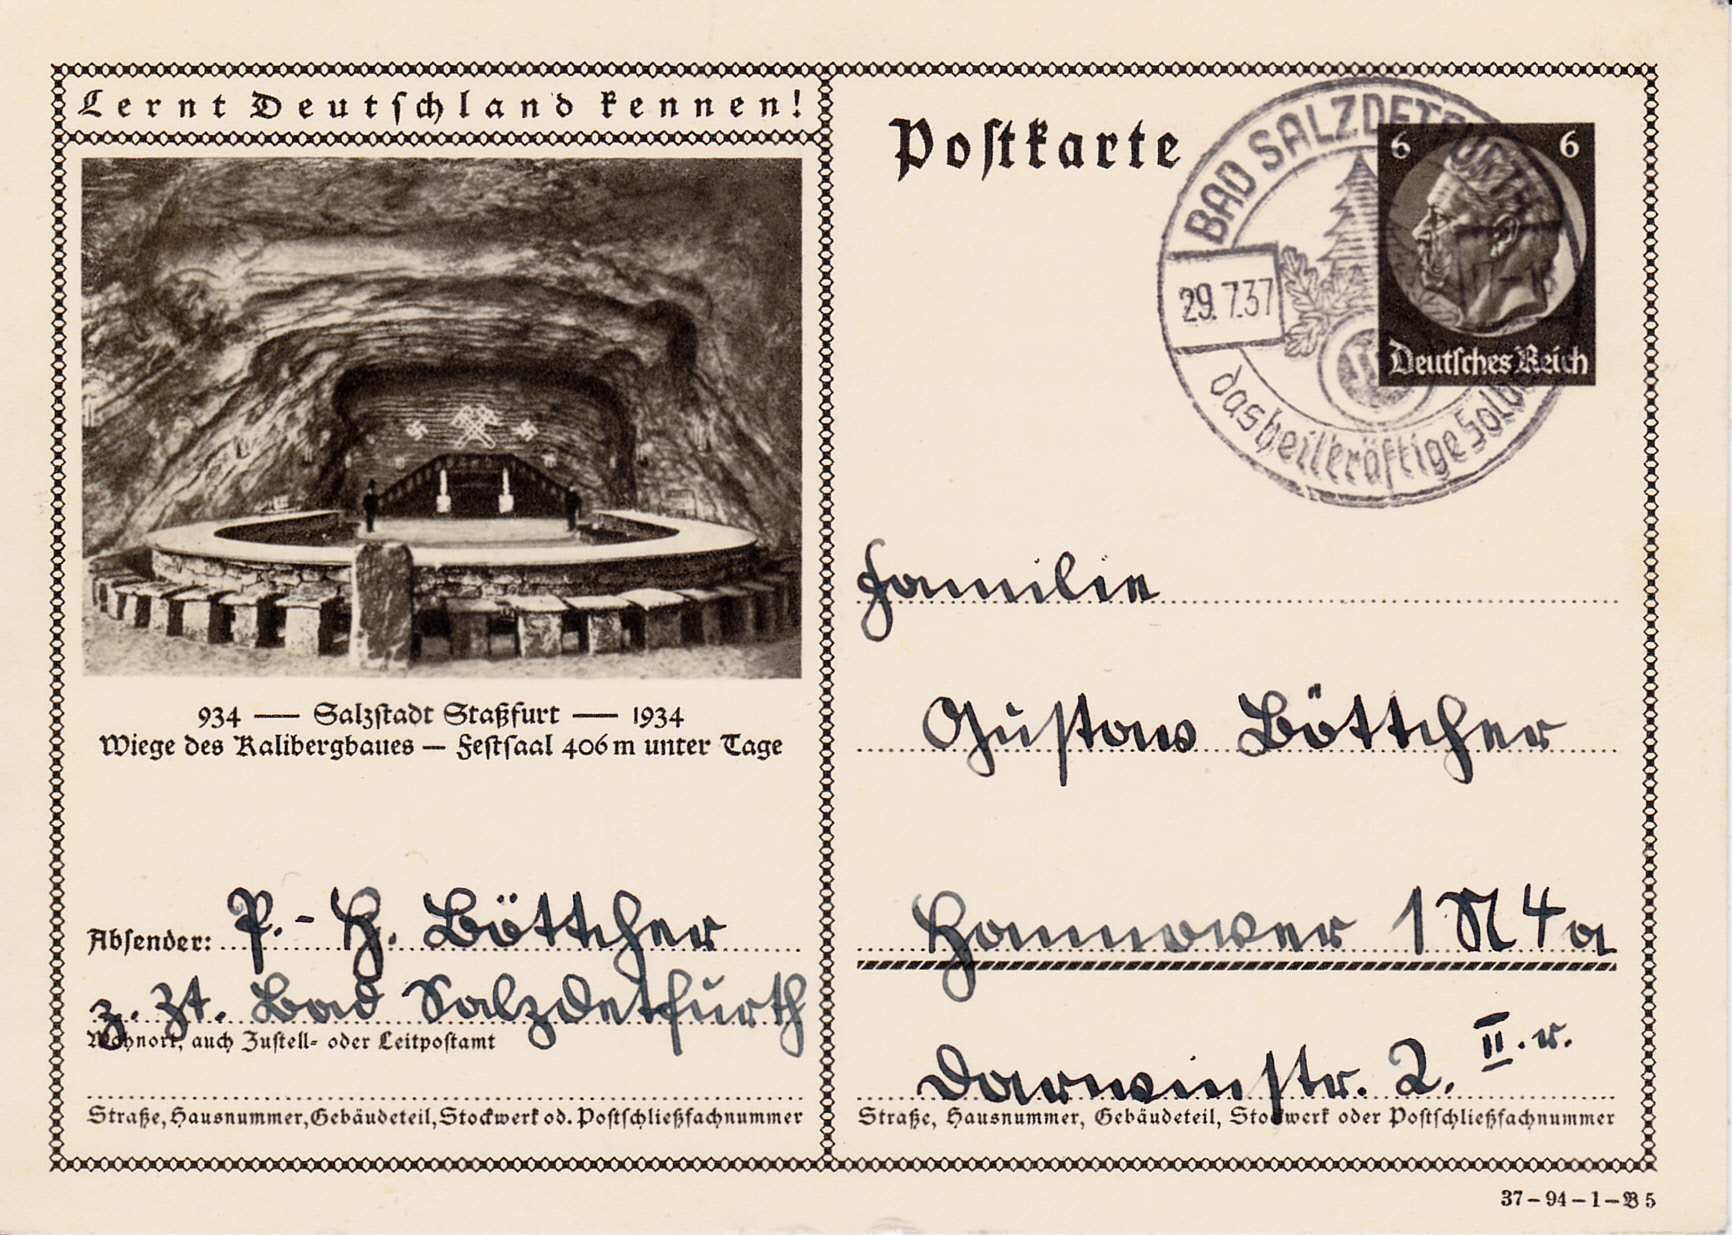 Lernt Deutschland kennen!
934 — Salzstadt Staßfurt — 1934
Wiege des Kalibergbaues — Festsaal 406 m unter Tage
Absender: P.-H. Böttcher
z. Zt. Bad Salzdetfurth
Wohnort, auch Zustell- oder Leitpostamt
Straße, Hausnummer, Gebäudeteil, Stockwerk od. Postschließfachnummer
Postkarte
BAD SALZDETFURTH
29.7.37
das heilkräftige Solb
6 6
Deutsches Reich
Familie
Gustav Böttcher
Hannover 1 N 4a
Darwinstr. 2. II. r.
Straße, Hausnummer, Gebäudeteil, Stockwerk oder Postschließfachnummer
37-94-1-B 5